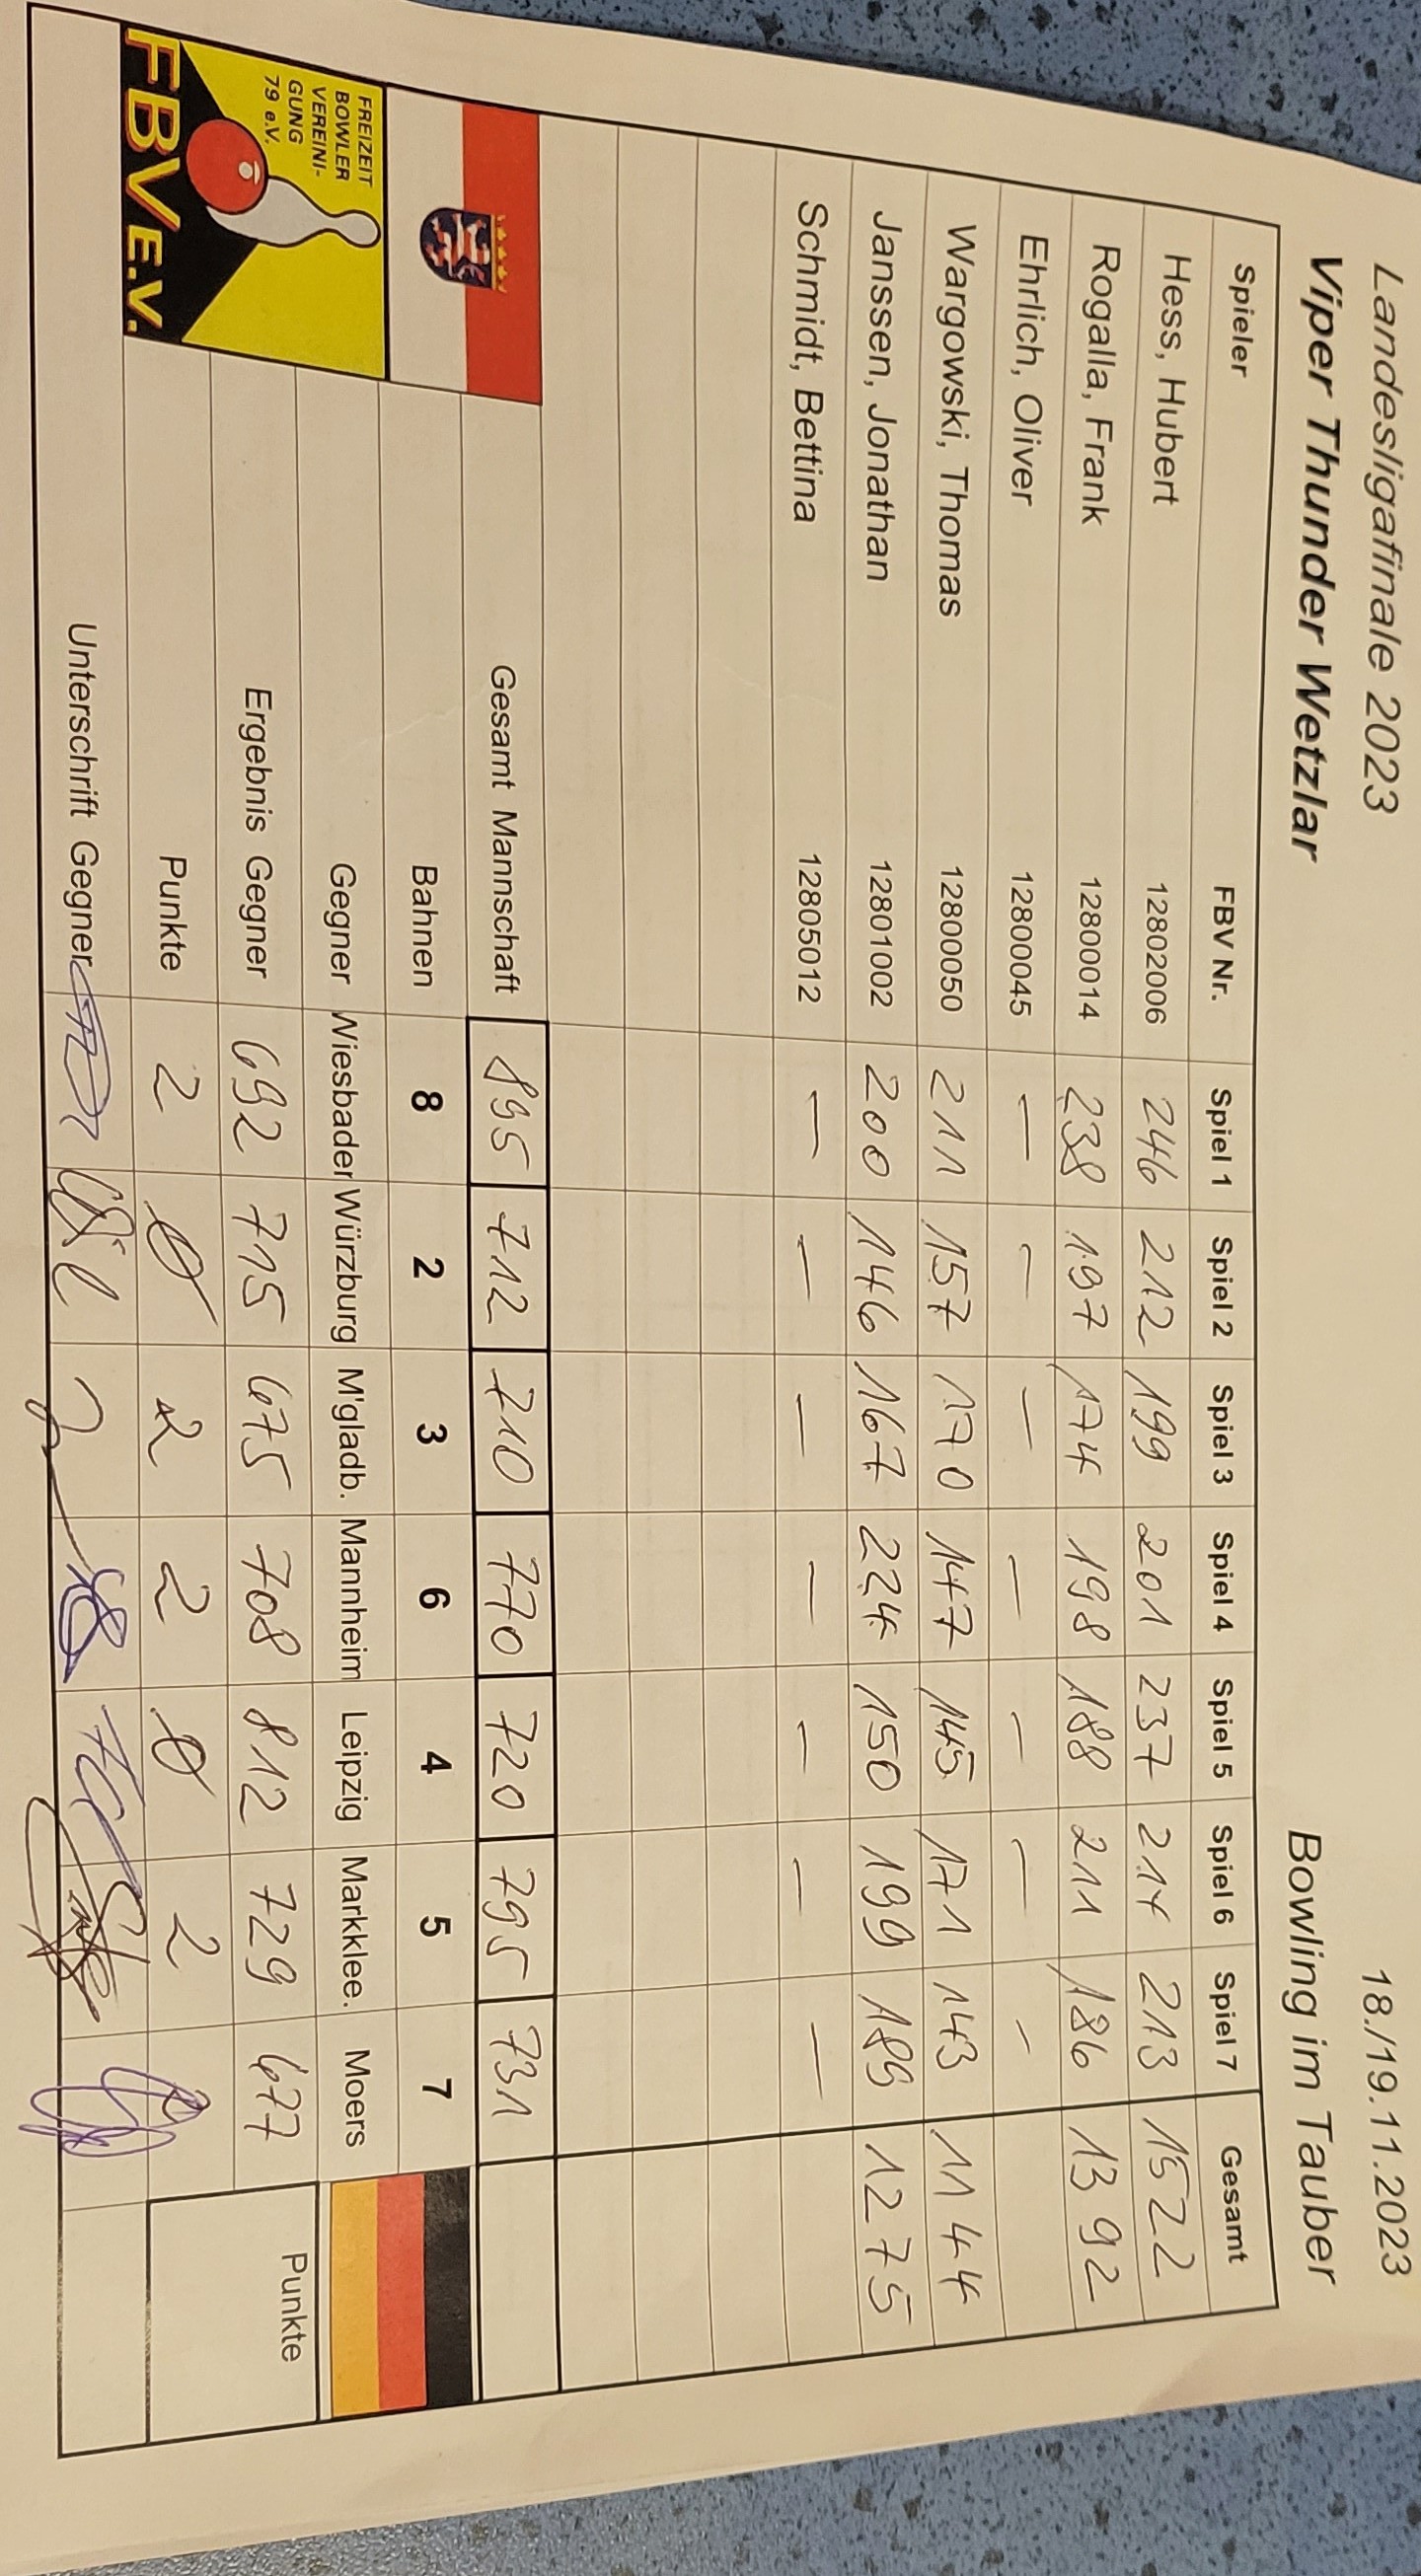 Landesligafinale 2023 18./19.11.2023
Viper Thunder Wetzlar Bowling im Tauber
Spieler FBV Nr. Spiel 1 Spiel 2 Spiel 3 Spiel 4 Spiel 5 Spiel 6 Spiel 7 Gesamt
Hess, Hubert 12802006 246 212 199 201 237 214 213 1522
Rogalla, Frank 12800014 238 197 174 198 188 211 186 1392
Ehrlich, Oliver 12800045 — — — — — — —
Wargowski, Thomas 12800050 211 157 170 147 145 171 143 1144
Janssen, Jonathan 12801002 200 146 167 224 150 199 189 1275
Schmidt, Bettina 12805012 — — — — — — —
Gesamt Mannschaft 895 712 710 770 720 795 731
Bahnen 8 2 3 6 4 5 7
Gegner Wiesbaden Würzburg M'gladb. Mannheim Leipzig Markklee. Moers
Ergebnis Gegner 692 715 675 708 812 729 677 Punkte
Punkte 2 0 2 2 0 2 2
Unterschrift Gegner
FREIZEIT
BOWLER
VEREINI-
GUNG
79 e.V.
FBV E.V.